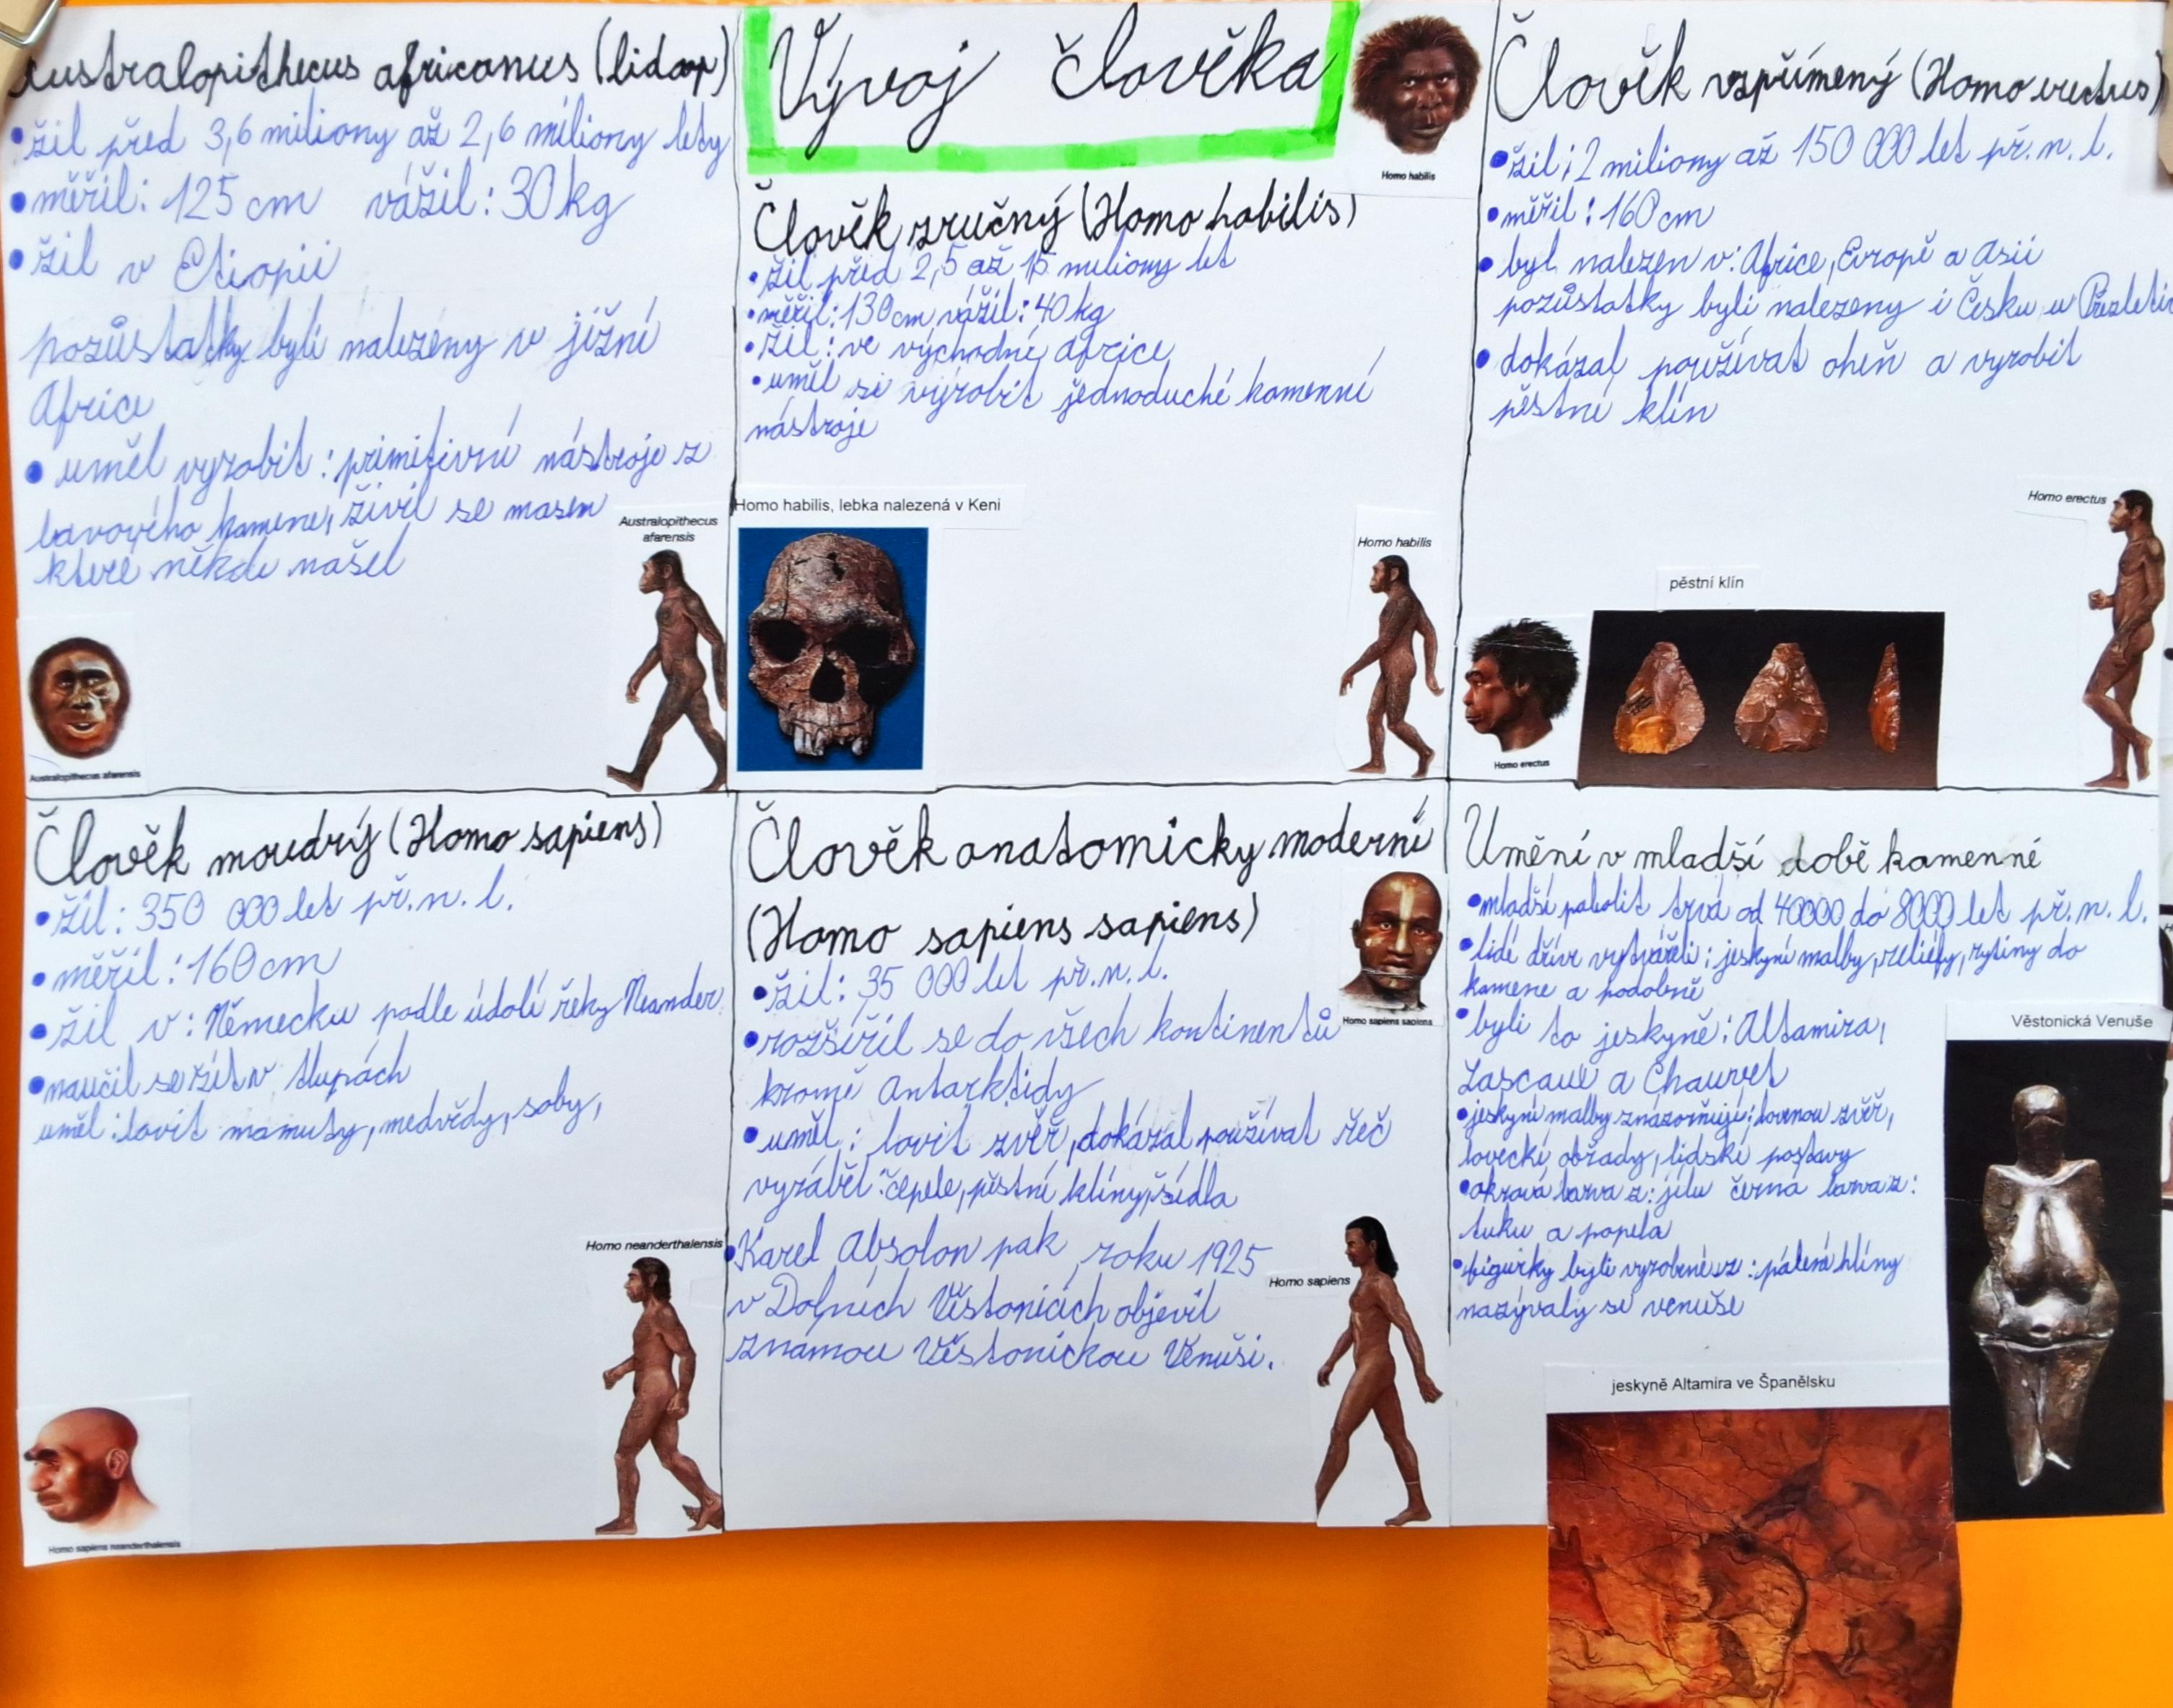 Australopithecus africanus (lidoop)
• žil před 3,6 miliony až 2,6 miliony lety
• měřil: 125 cm vážil: 30 kg
• žil v Etiopii
pozůstatky byli nalezeny v jižní
Africe
• uměl vyrobit: primitivní nástroje z
lavového kamene, živil se masem
které někde našel
Australopithecus
afarensis
Australopithecus afarensis
Vývoj člověka
Homo habilis
Člověk zručný (Homo habilis)
• žil před 2,5 až 15 miliony let
• měřil: 130 cm vážil: 40 kg
• žil: ve východní Africe
• uměl si vyrobit jednoduché kamenné
nástroje
Homo habilis, lebka nalezená v Keni
Homo habilis
Člověk vzpřímený (Homo erectus)
• žil; 2 miliony až 150 000 let př. n. l.
• měřil: 160 cm
• byl nalezen v: Africe, Evropě a Asii
pozůstatky byli nalezeny i Česku u
• dokázal používat oheň a vyrobit
pěstní klín
Homo erectus
pěstní klín
Homo erectus
Člověk moudrý (Homo sapiens)
• žil: 350 000 let př. n. l.
• měřil: 160 cm
• žil v: Německu podle údolí řeky Neander
• naučil se žít v tlupách
uměl: lovit mamuty, medvědy, soby,
Homo neanderthalensis
Homo sapiens neanderthalensis
Člověk anatomicky moderní
(Homo sapiens sapiens)
• žil: 35 000 let př. n. l.
Homo sapiens sapiens
• rozšířil se do všech kontinentů
kromě Antarktidy
• uměl: lovit zvěř, dokázal používat řeč
vyráběl: čepele, pěstní klíny, šídla
• Karel Absolon pak roku 1925
v Dolních Věstonicích objevil
známou Věstonickou Venuši.
Homo sapiens
Umění v mladší době kamenné
• mladší paleolit trvá od 40000 do 8000 let př. n. l.
• lidé dříve vytvářeli: jeskyní malby, reliéfy, rytiny do
kamene a podobně
• byli to jeskyně: Altamira,
a Chauvet
• jeskyní malby znázorňují: lovenou zvěř,
lovecké obřady, lidské postavy
• okrová barva z: jílu černá barva z:
tuku a popela
• figurky byli vyrobené z: pálená hlíny
nazývaly se venuše
Věstonická Venuše
jeskyně Altamira ve Španělsku